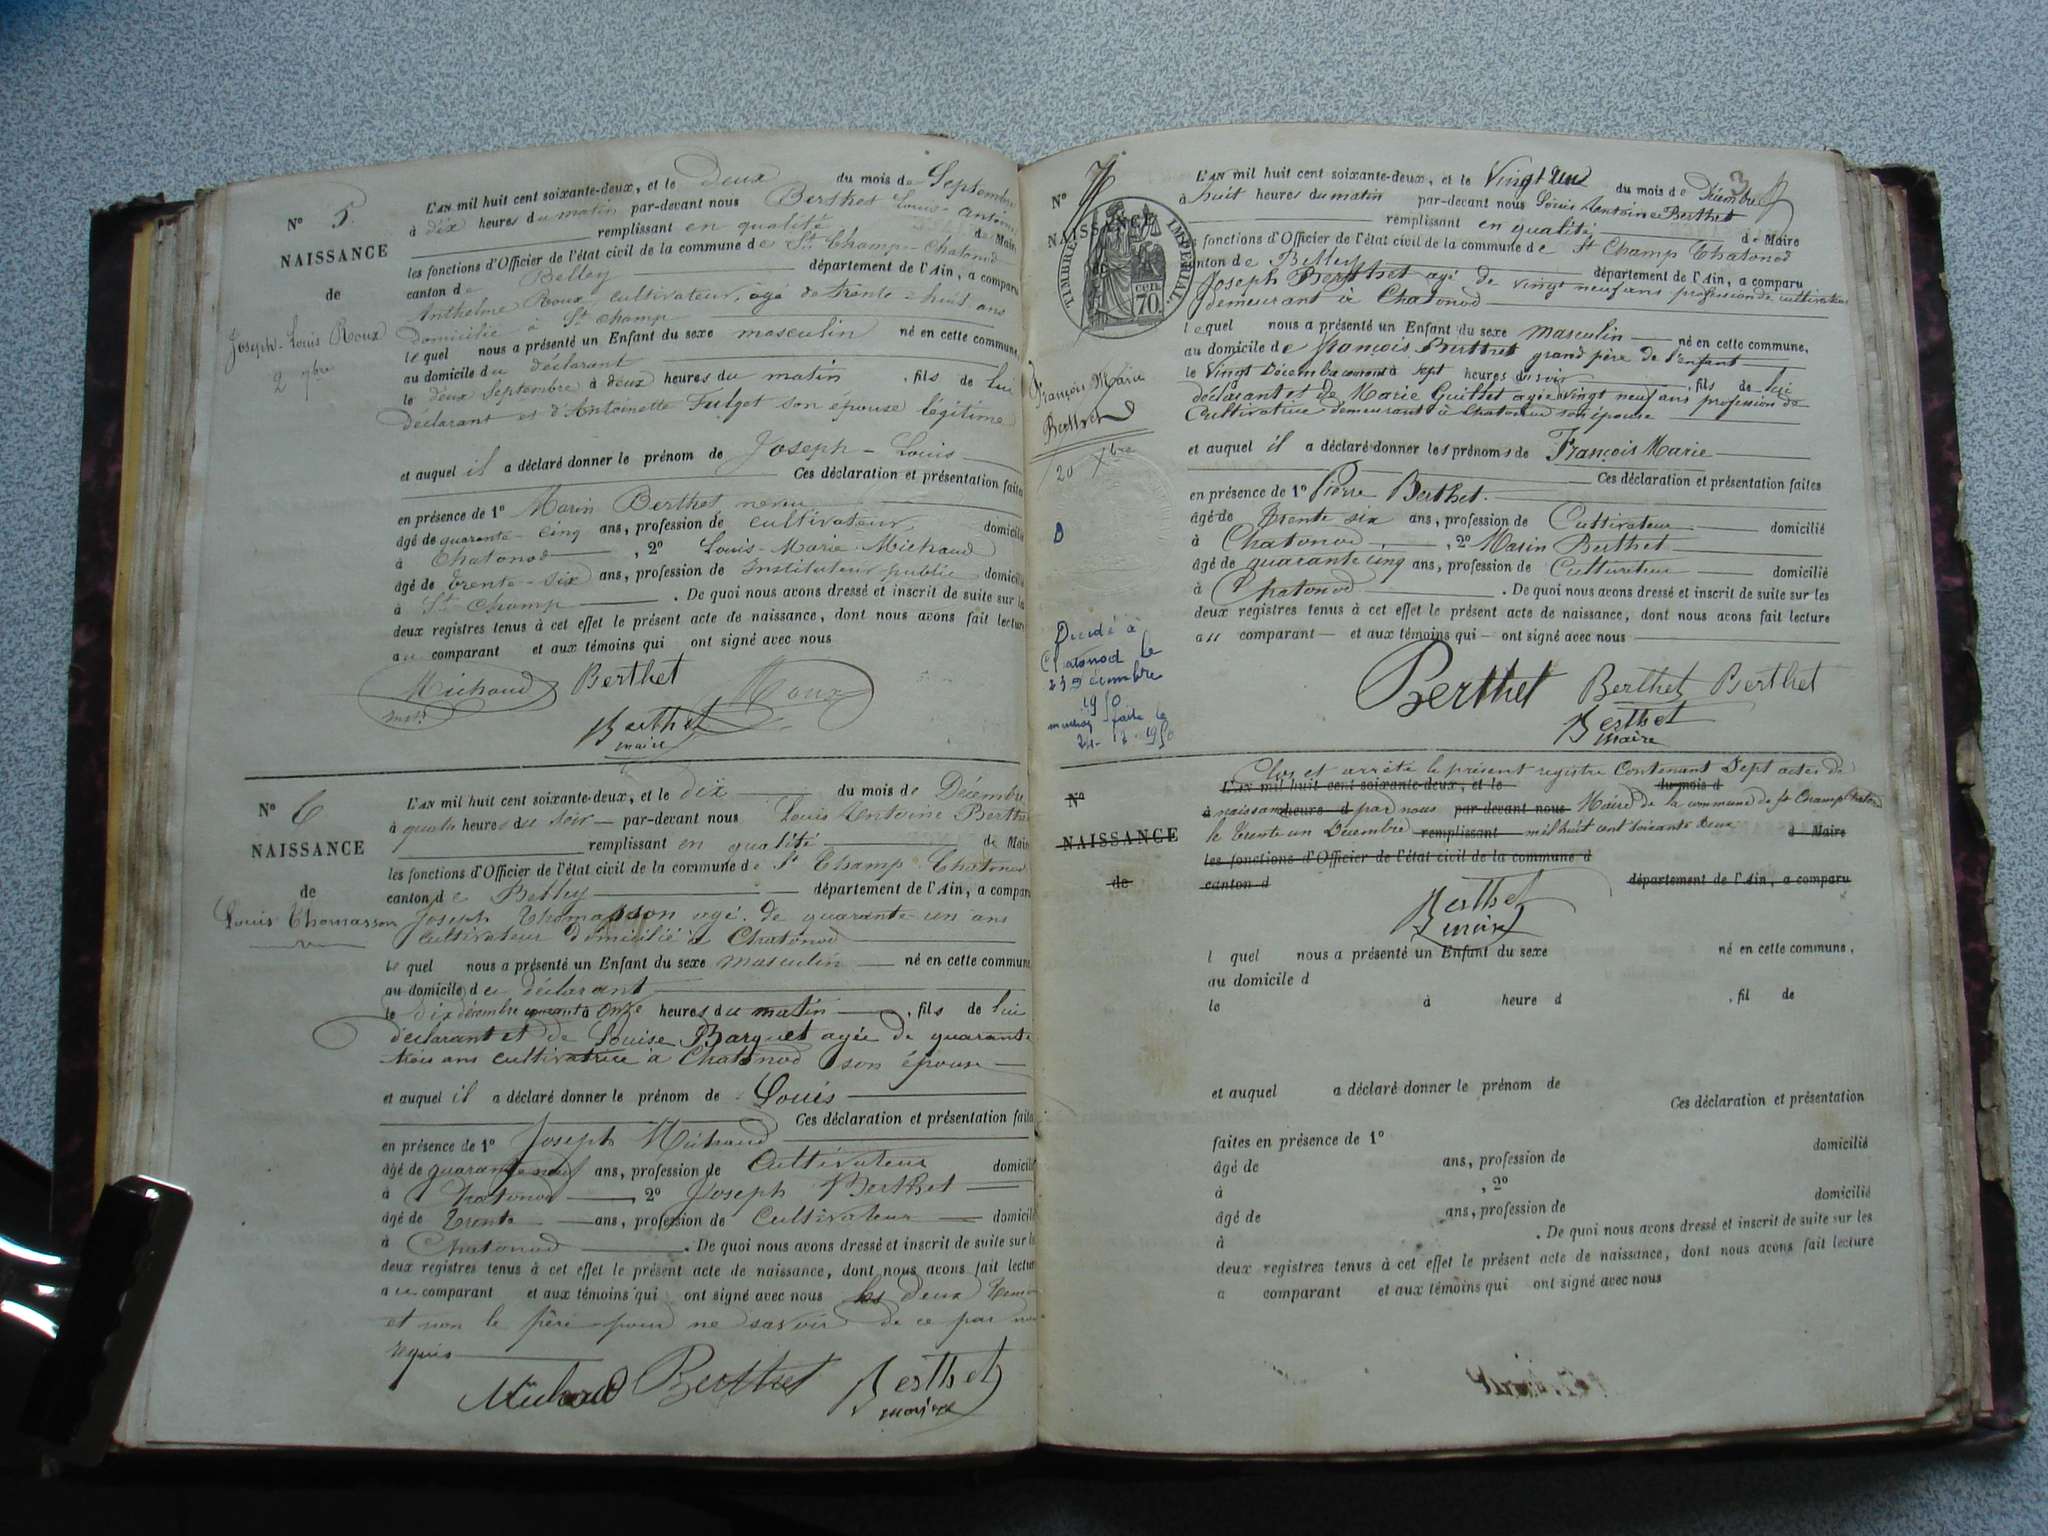 N° 5.
NAISSANCE
de
Joseph-Louis Roux
2 7bre
L'AN mil huit cent soixante-deux, et le Deux du mois de Septembre
à dix heures du matin par-devant nous Berthet Louis-Antoine
remplissant en qualité de Maire
les fonctions d'Officier de l'état civil de la commune de St Champ-Chatonod
canton de Belley département de l'Ain, a comparu
Anthelme Roux, cultivateur, âgé de trente-huit ans
domicilié à St Champ
lequel nous a présenté un Enfant du sexe masculin né en cette commune,
au domicile du déclarant
le deux Septembre à deux heures du matin, fils de lui
déclarant et d'Antoinette Fulget son épouse légitime
et auquel il a déclaré donner le prénom de Joseph-Louis
Ces déclaration et présentation faites
en présence de 1° Marin Berthet neveu
âgé de quarante-cinq ans, profession de cultivateur, domicilié
à Chatonod, 2° Louis-Marie Michaud
âgé de trente-six ans, profession de Instituteur public domicilié
à St Champ. De quoi nous avons dressé et inscrit de suite sur les
deux registres tenus à cet effet le présent acte de naissance, dont nous avons fait lecture
au comparant et aux témoins qui ont signé avec nous
Michaud Berthet Roux
instr
Berthet
maire
N° 6
NAISSANCE
de
Louis Thomasson
L'AN mil huit cent soixante-deux, et le dix du mois de Décembre
à quatre heures du soir par-devant nous Louis Antoine Berthet
remplissant en qualité de Maire
les fonctions d'Officier de l'état civil de la commune de St Champ Chatonod
canton de Belley département de l'Ain, a comparu
Joseph Thomasson agé de quarante-un ans
cultivateur domicilié à Chatonod
lequel nous a présenté un Enfant du sexe masculin né en cette commune
au domicile du déclarant
le dix décembre courant à onze heures du matin, fils de lui
déclarant et de Louise Barquet agée de quarante
trois ans cultivatrice à Chatonod son épouse
et auquel il a déclaré donner le prénom de Louis
Ces déclaration et présentation faites
en présence de 1° Joseph Michaud
âgé de quarante neuf ans, profession de Cultivateur domicilié
à Chatonod, 2° Joseph Berthet
âgé de Trente ans, profession de Cultivateur domicilié
à Chatonod. De quoi nous avons dressé et inscrit de suite sur les
deux registres tenus à cet effet le présent acte de naissance, dont nous avons fait lecture
au comparant et aux témoins qui ont signé avec nous les deux Témoins
et non le père pour ne savoir de ce par nous
requis
Michaud Berthet Berthet
maire
3
N° 7
NAISSANCE
TIMBRE IMPERIAL
70 cen
François Marie
Berthet
20 Xbre
D
Décédé à
Chatonod le
23 Décembre
1950
mention faite le
24-12-1950
L'AN mil huit cent soixante-deux, et le Vingt deux du mois de Décembre
à huit heures du matin par-devant nous Louis Antoine Berthet
remplissant en qualité de Maire
les fonctions d'Officier de l'état civil de la commune de St Champ Chatonod
canton de Belley département de l'Ain, a comparu
Joseph Berthet agé de vingt neuf ans profession de cultivateur
demeurant à Chatonod
lequel nous a présenté un Enfant du sexe masculin né en cette commune,
au domicile de François Berthet grand père de l'enfant
le Vingt Décembre courant à sept heures du soir, fils de lui
déclarant et de Marie Guillet agée vingt neuf ans profession de
Cultivatrice demeurant à Chatonod son épouse
et auquel il a déclaré donner les prénoms de François Marie
Ces déclaration et présentation faites
en présence de 1° Pierre Berthet.
âgé de Trente six ans, profession de Cultivateur domicilié
à Chatonod, 2° Marin Berthet
âgé de quarante cinq ans, profession de Cultivateur domicilié
à Chatonod. De quoi nous avons dressé et inscrit de suite sur les
deux registres tenus à cet effet le présent acte de naissance, dont nous avons fait lecture
au comparant et aux témoins qui ont signé avec nous
Berthet Berthet Berthet
Berthet
maire
Clos et arrêté le présent registre Contenant Sept actes de
N°
L'AN mil huit cent soixante-deux, et le du mois d
à naissance heure d par nous par-devant nous Maire de la commune de St Champ Chatonod
NAISSANCE
le Trente un Décembre remplissant mil huit cent soixante Deux d Maire
les fonctions d'Officier de l'état civil de la commune d
de
canton d département de l'Ain, a comparu
Berthet
maire
l quel nous a présenté un Enfant du sexe né en cette commune,
au domicile d
le à heure d, fil de
et auquel a déclaré donner le prénom de
Ces déclaration et présentation
faites en présence de 1°
âgé de ans, profession de domicilié
à , 2°
âgé de ans, profession de domicilié
à . De quoi nous avons dressé et inscrit de suite sur les
deux registres tenus à cet effet le présent acte de naissance, dont nous avons fait lecture
a comparant et aux témoins qui ont signé avec nous